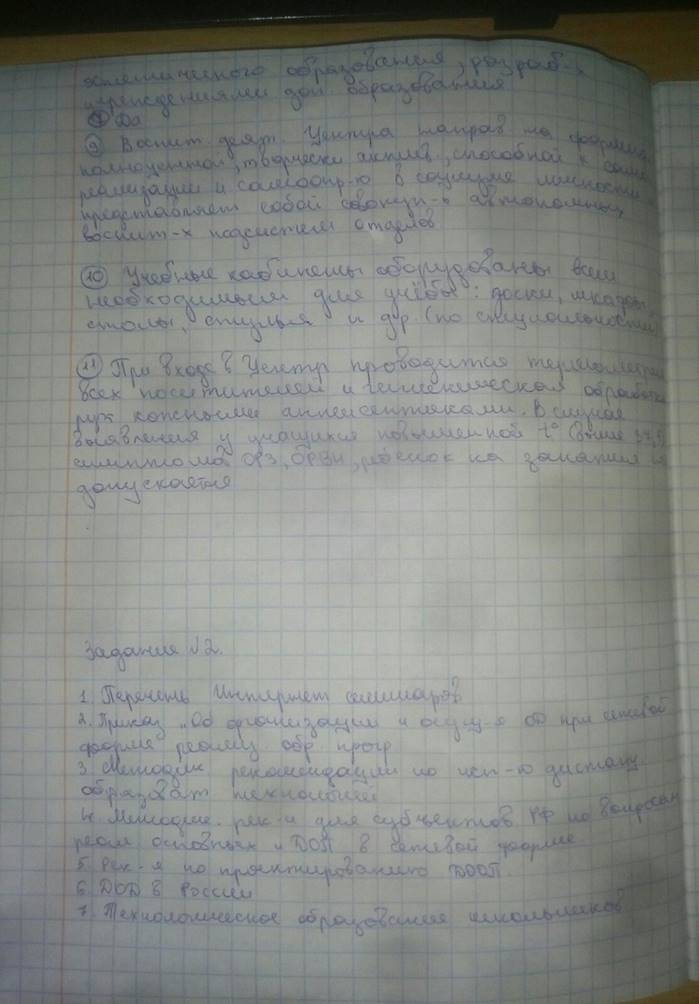 эстетического образования, разраб-х
учреждениями доп образования
⑧ Да
⑨ Воспит деят. Центра направ на формир.
полноценной, творчески актив, способной к само
реализации и самоопр-ю в социуме личности
представляет собой совокуп-ь автономных
воспит-х подсистем отделов
⑩ Учебные кабинеты оборудованы всем
необходимым для учёбы: доски, шкафы,
столы, стулья и др. (по специальности)
⑪ При входе в Центр проводится термометрия
всех посетителей и гигиеническая обработка
рук кожными антисептиками. В случае
выявления у учащихся повышенной t° (выше 37,1)
симптома ОРЗ, ОРВИ, ребёнок на занятия не
допускается
Задание №2.
1. Перечень Интернет семинаров
2. Приказ „Об организации и осущ-я ОД при сетевой
форме реализ. обр. прогр
3. Методич. рекомендации по исп-ю дистанц.
образоват. технологий
4. Методич. рек-и для субъектов РФ по вопросам
реал основных и ДОП в сетевой форме
5. Рек-я по проектированию ДООП
6. ДОД в России
7. Технологическое образование школьников